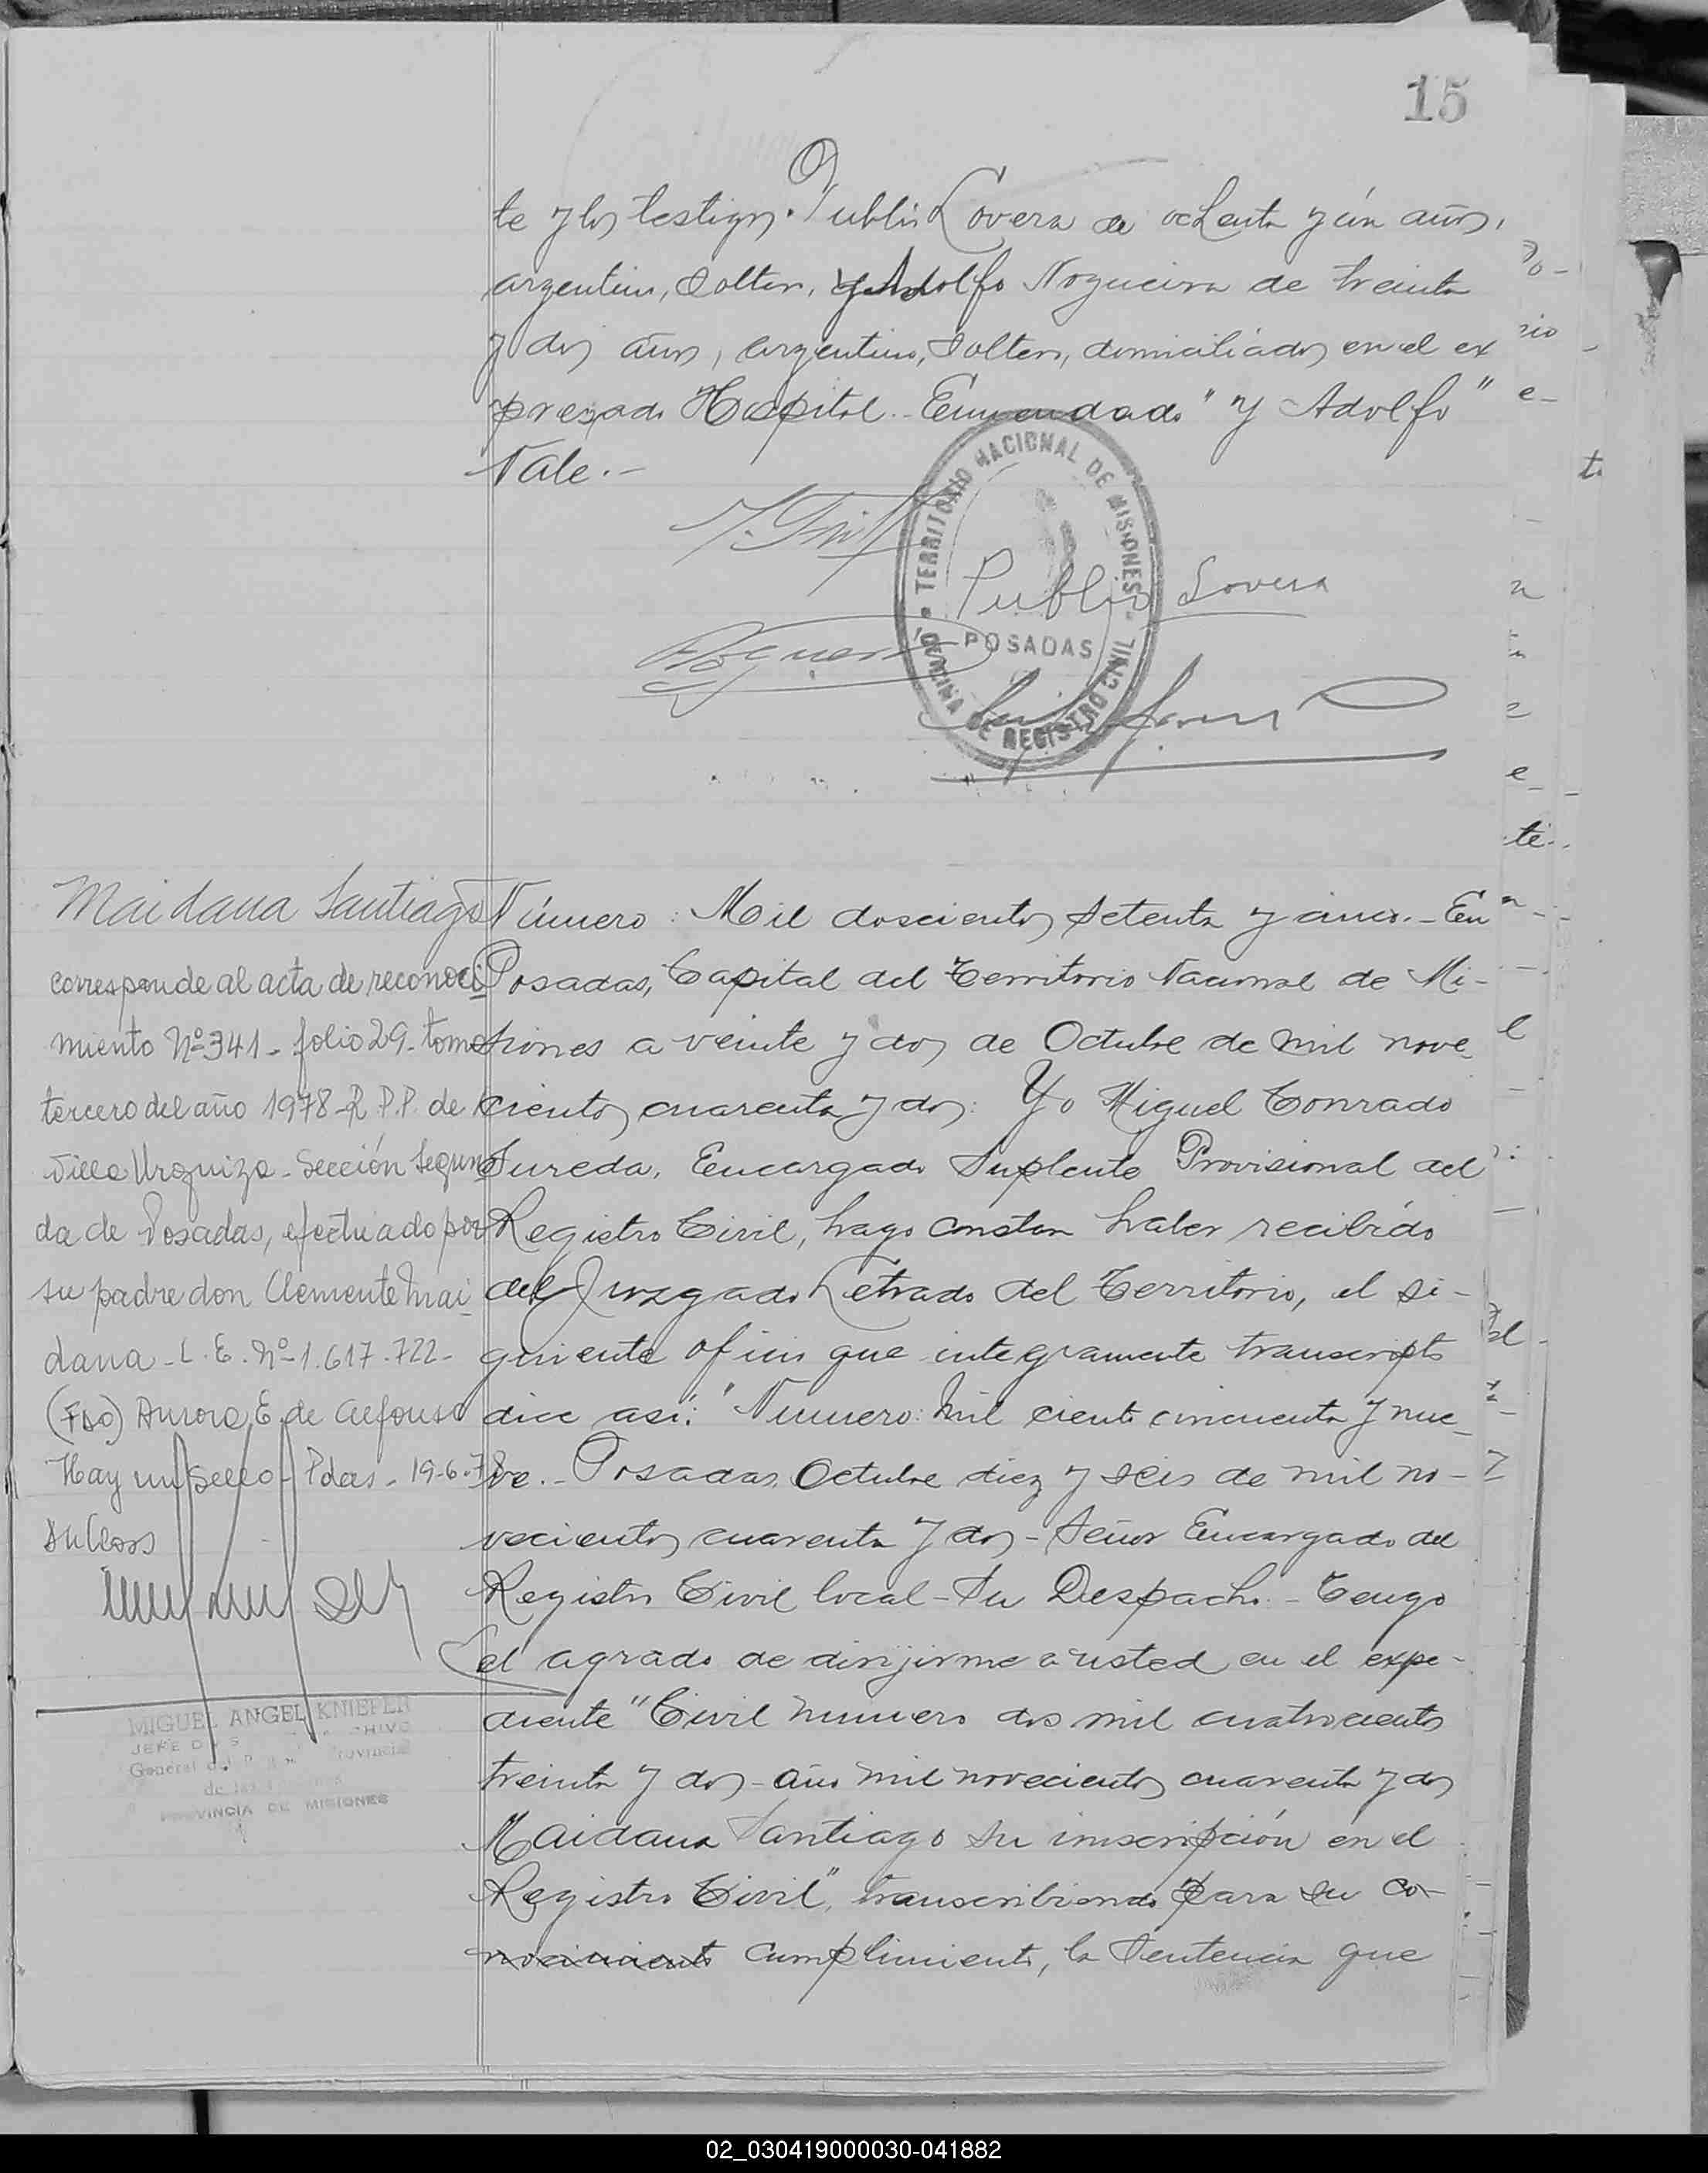 15
te y los testigos. Publio Lovera de ochenta y un años,
argentino, soltero, y Adolfo Nogueira de treinta
y dos años, argentino, soltero, domiciliados en el ex
presado Hospital. - Enmendado " y Adolfo "
Vale. -
TERRITORIO NACIONAL DE MISIONES
Publio Lovera
POSADAS
OFICINA DE REGISTRO CIVIL
Maidana Santiago
corresponde al acta de reconoci
miento Nº 341 - folio 29 - tomo
tercero del año 1978 - R.P.P. de
Villa Urquiza - Sección Segun
da de Posadas, efectuado por
su padre don Clemente Mai
dana - L.E. Nº 1.617.722 -
(Fdo) Aurora E. de Alfonso
Hay un sello - Pdas - 19-6-78
MIGUEL ANGEL KNIEFER
PROVINCIA DE MISIONES
Número: Mil doscientos setenta y cinco. - En
Posadas, Capital del Territorio Nacional de Mi-
siones a veinte y dos de Octubre de mil nove
cientos cuarenta y dos: Yo Miguel Conrado
Sureda, Encargado Suplente Provisional del
Registro Civil, hago constar haber recibido
del Juzgado Letrado del Territorio, el si-
guiente oficio que integramente transcripto
dice así: "Numero: Mil ciento cincuenta y nue
ve. - Posadas, Octubre diez y seis de mil no-
vecientos cuarenta y dos - Señor Encargado del
Registro Civil local - Su Despacho. - Tengo
el agrado de dirijirme a usted en el expe-
diente "Civil numero dos mil cuatrocientos
treinta y dos - año mil novecientos cuarenta y dos
Maidana Santiago su inscripción en el
Registro Civil", transcribiendo para su co-
nocimiento cumplimiento, la Sentencia que
02_030419000030-041882